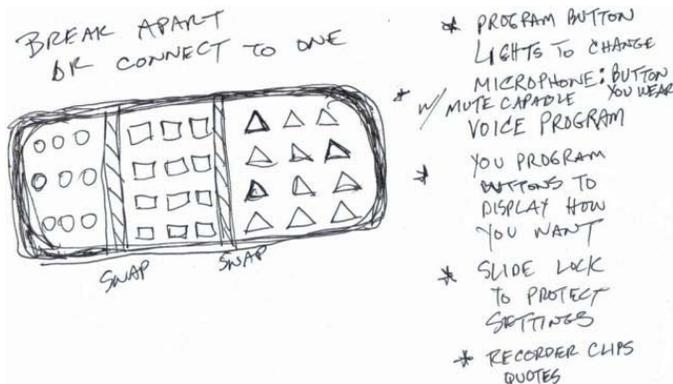 BREAK APART
OR CONNECT TO ONE
SNAP
SNAP
* PROGRAM BUTTON
LIGHTS TO CHANGE
* MICROPHONE: BUTTON
W/ MUTE CAPABLE YOU WEAR
VOICE PROGRAM
* YOU PROGRAM
BUTTONS TO
DISPLAY HOW
YOU WANT
* SLIDE LOCK
TO PROTECT
SETTINGS
* RECORDER CLIPS
QUOTES